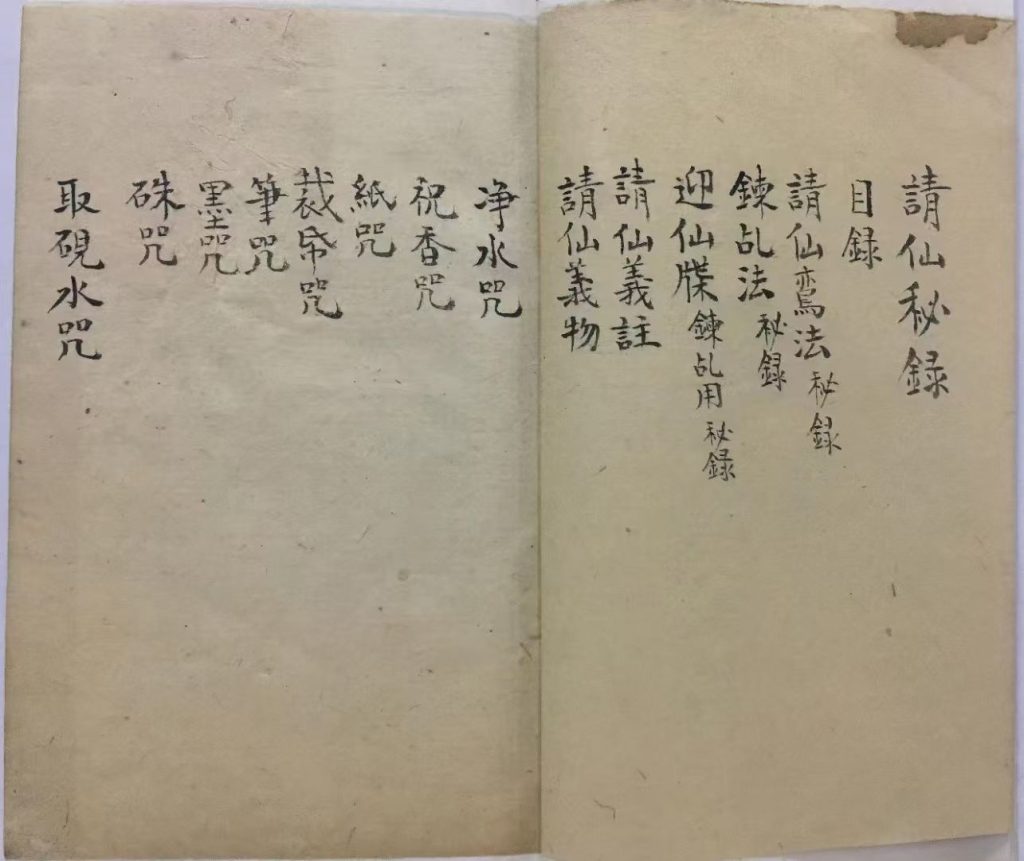 請仙秘録
目録
請仙鸞法秘録
鍊乩法秘録
迎仙牒鍊乩用秘録
請仙義註
請仙義物
净水咒
祝香咒
紙咒
裁帋咒
筆咒
墨咒
硃咒
取硯水咒